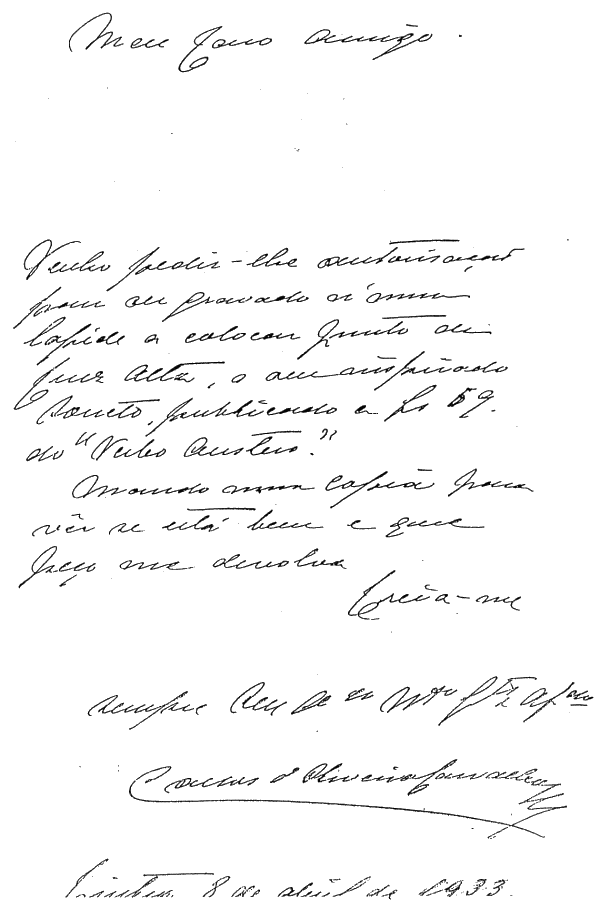 Meu Caro Amigo.
Venho pedir-lhe autorisação
para ser gravado n'uma
lapide a colocar junto da
Cruz Alta, o seu inspirado
Soneto, publicado a fs 59.
do "Verbo Austero."
Mando uma copia para
vêr se está bem e que
peço me devolva
Creia-me
sempre Seu
Carlos d'Oliveira Carvalho
Sintra 8 de abril de 1933.